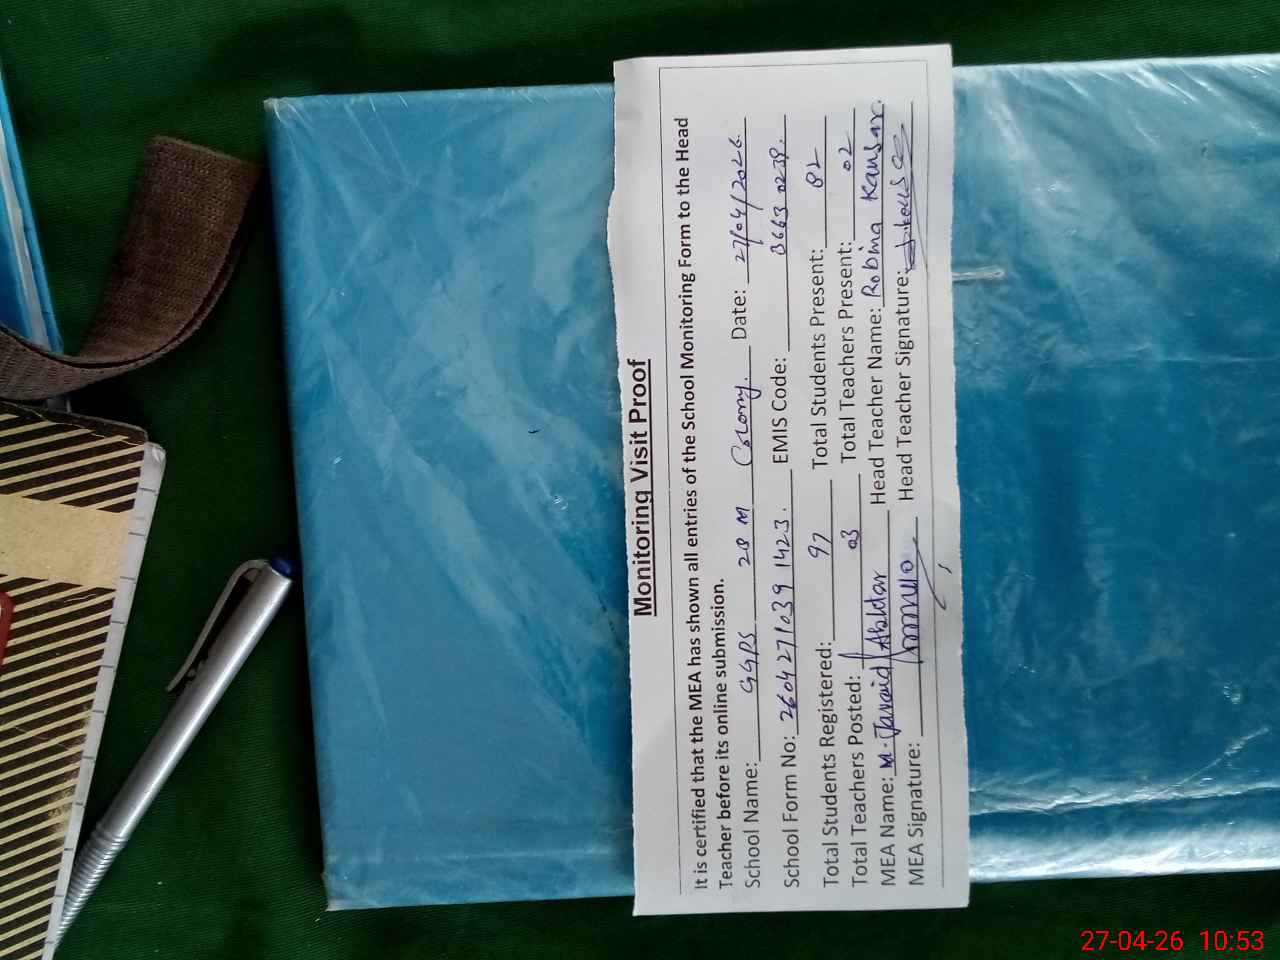 Monitoring Visit Proof
It is certified that the MEA has shown all entries of the School Monitoring Form to the Head
Teacher before its online submission.
School Name: GGPS 28 M Colony. Date: 27/04/2026.
School Form No: 2604271039 1423. EMIS Code: 3663 0239.
Total Students Registered: 97 Total Students Present: 82
Total Teachers Posted: 03 Total Teachers Present: 02
MEA Name: M. Javaid Akhtar Head Teacher Name: Robina Kausar.
MEA Signature: Head Teacher Signature:
27-04-26 10:53